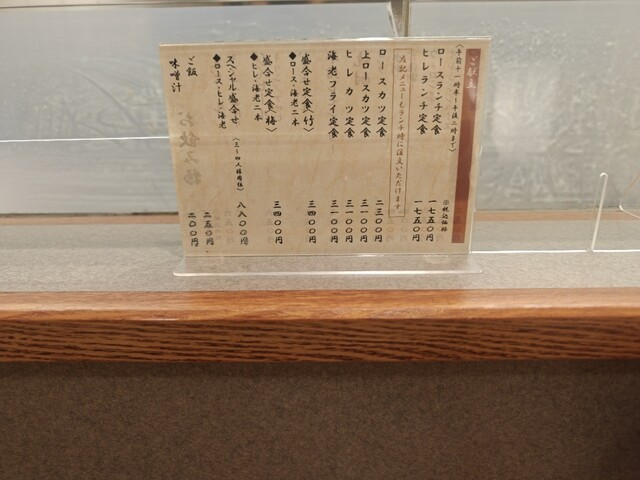 ご献立
(午前十一時半〜午後二時まで)
※税込価格
ロースランチ定食 一七五〇円
ヒレランチ定食 一七五〇円
左記メニューもランチ時に注文いただけます。
ロースカツ定食 二三〇〇円
上ロースカツ定食 三一〇〇円
ヒレカツ定食 三一〇〇円
海老フライ定食 三一〇〇円
盛合せ定食(竹) 三四〇〇円
◆ロース・海老二本
盛合せ定食(梅) 三四〇〇円
◆ヒレ・海老二本
スペシャル盛合せ(三〜四人様用位) 八八〇〇円
◆ロース・ヒレ・海老
ご飯 二五〇円
味噌汁 二〇〇円